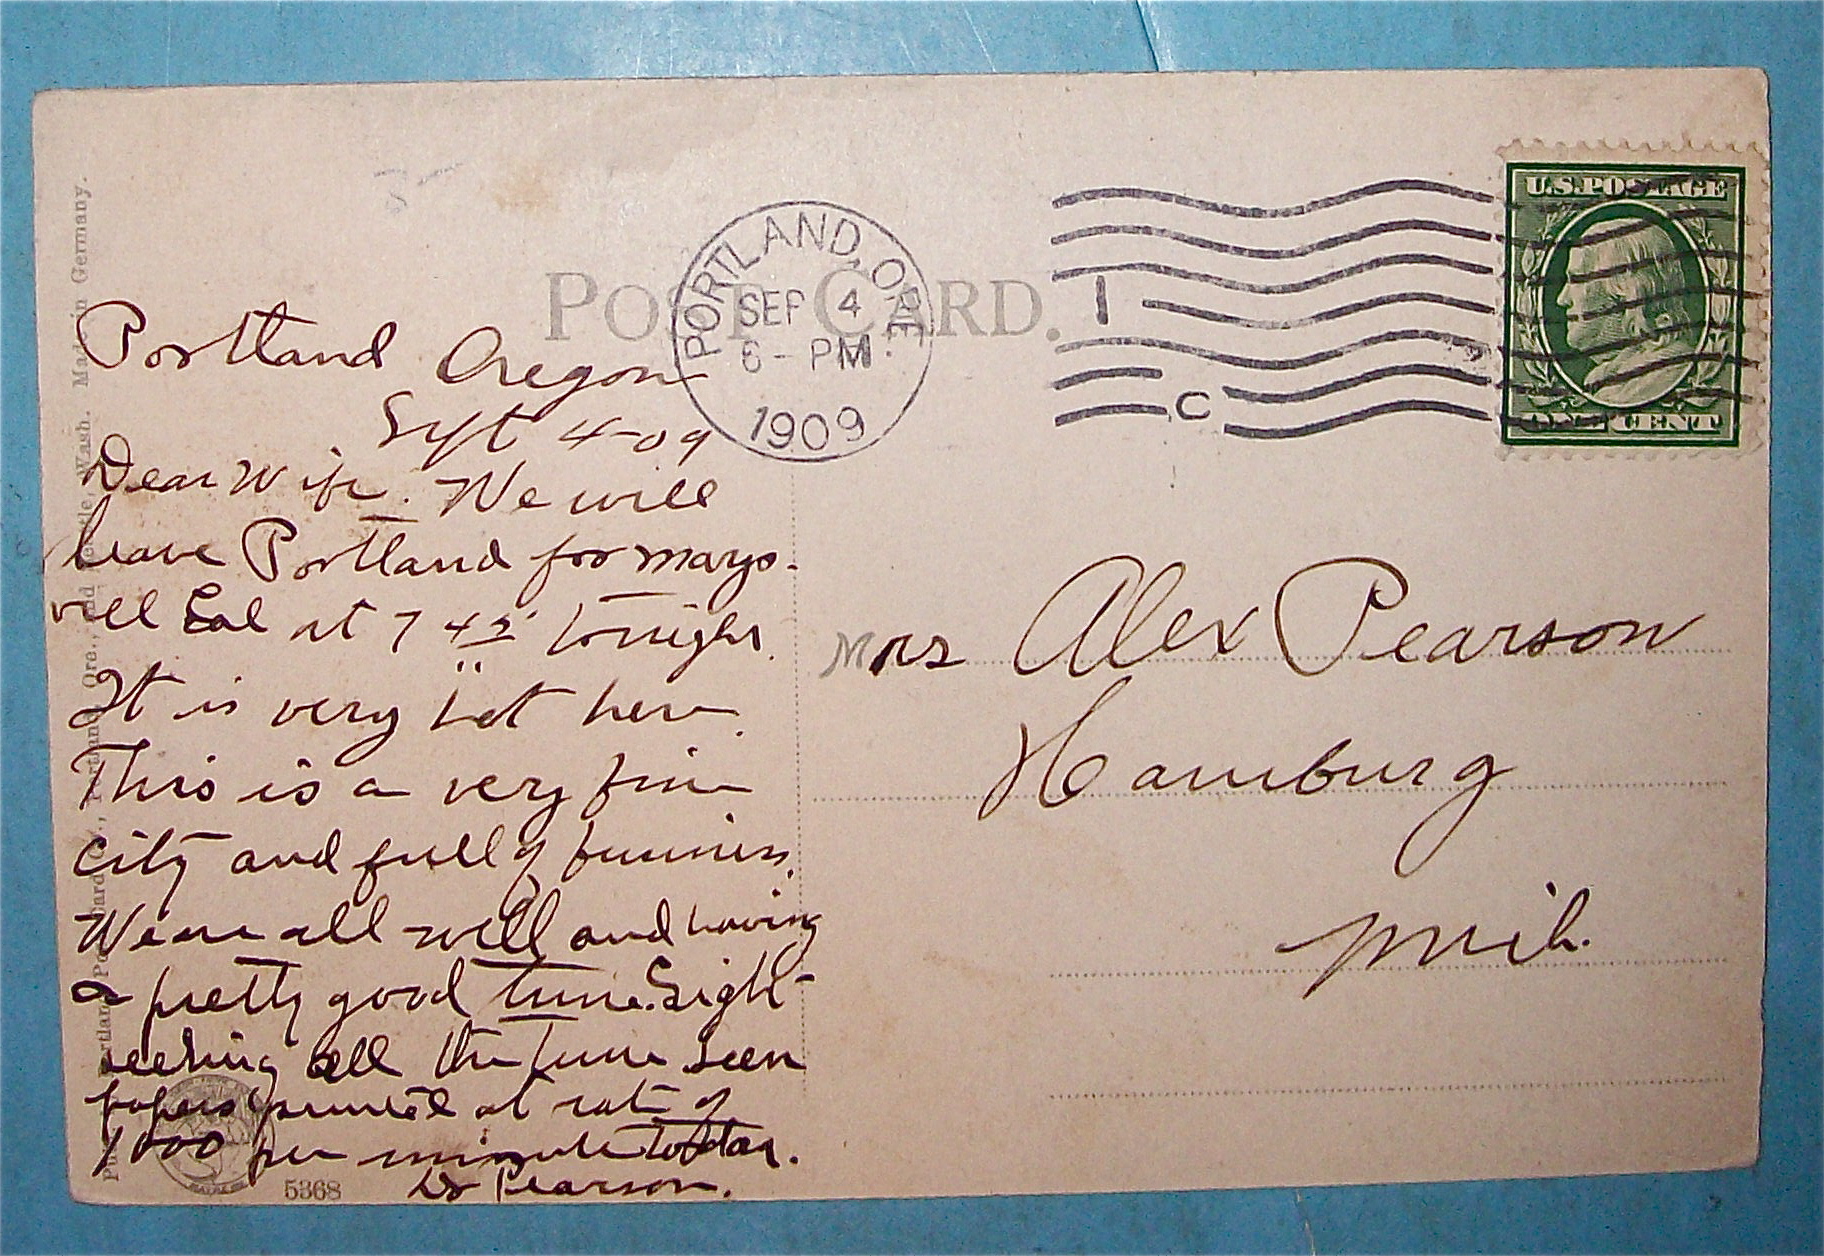 POST CARD.
PORTLAND, ORE.
SEP 4
6-PM
1909
1
C
U.S. POSTAGE
ONE CENT
Portland Oregon
Sept 4-09
Dear Wife. We will
leave Portland for Marys-
vill Cal at 7 45 tonight.
It is very hot here.
This is a very fine
city and full of business.
We are all well and having
a pretty good time. Sight-
seeking all the time seen
papers printed at rate of
1000 per minute today.
Dr Pearson.
Mrs Alex Pearson
Hamburg
Mich.
Portland Post Card Co., Portland, Ore., and Seattle, Wash. Made in Germany.
5368